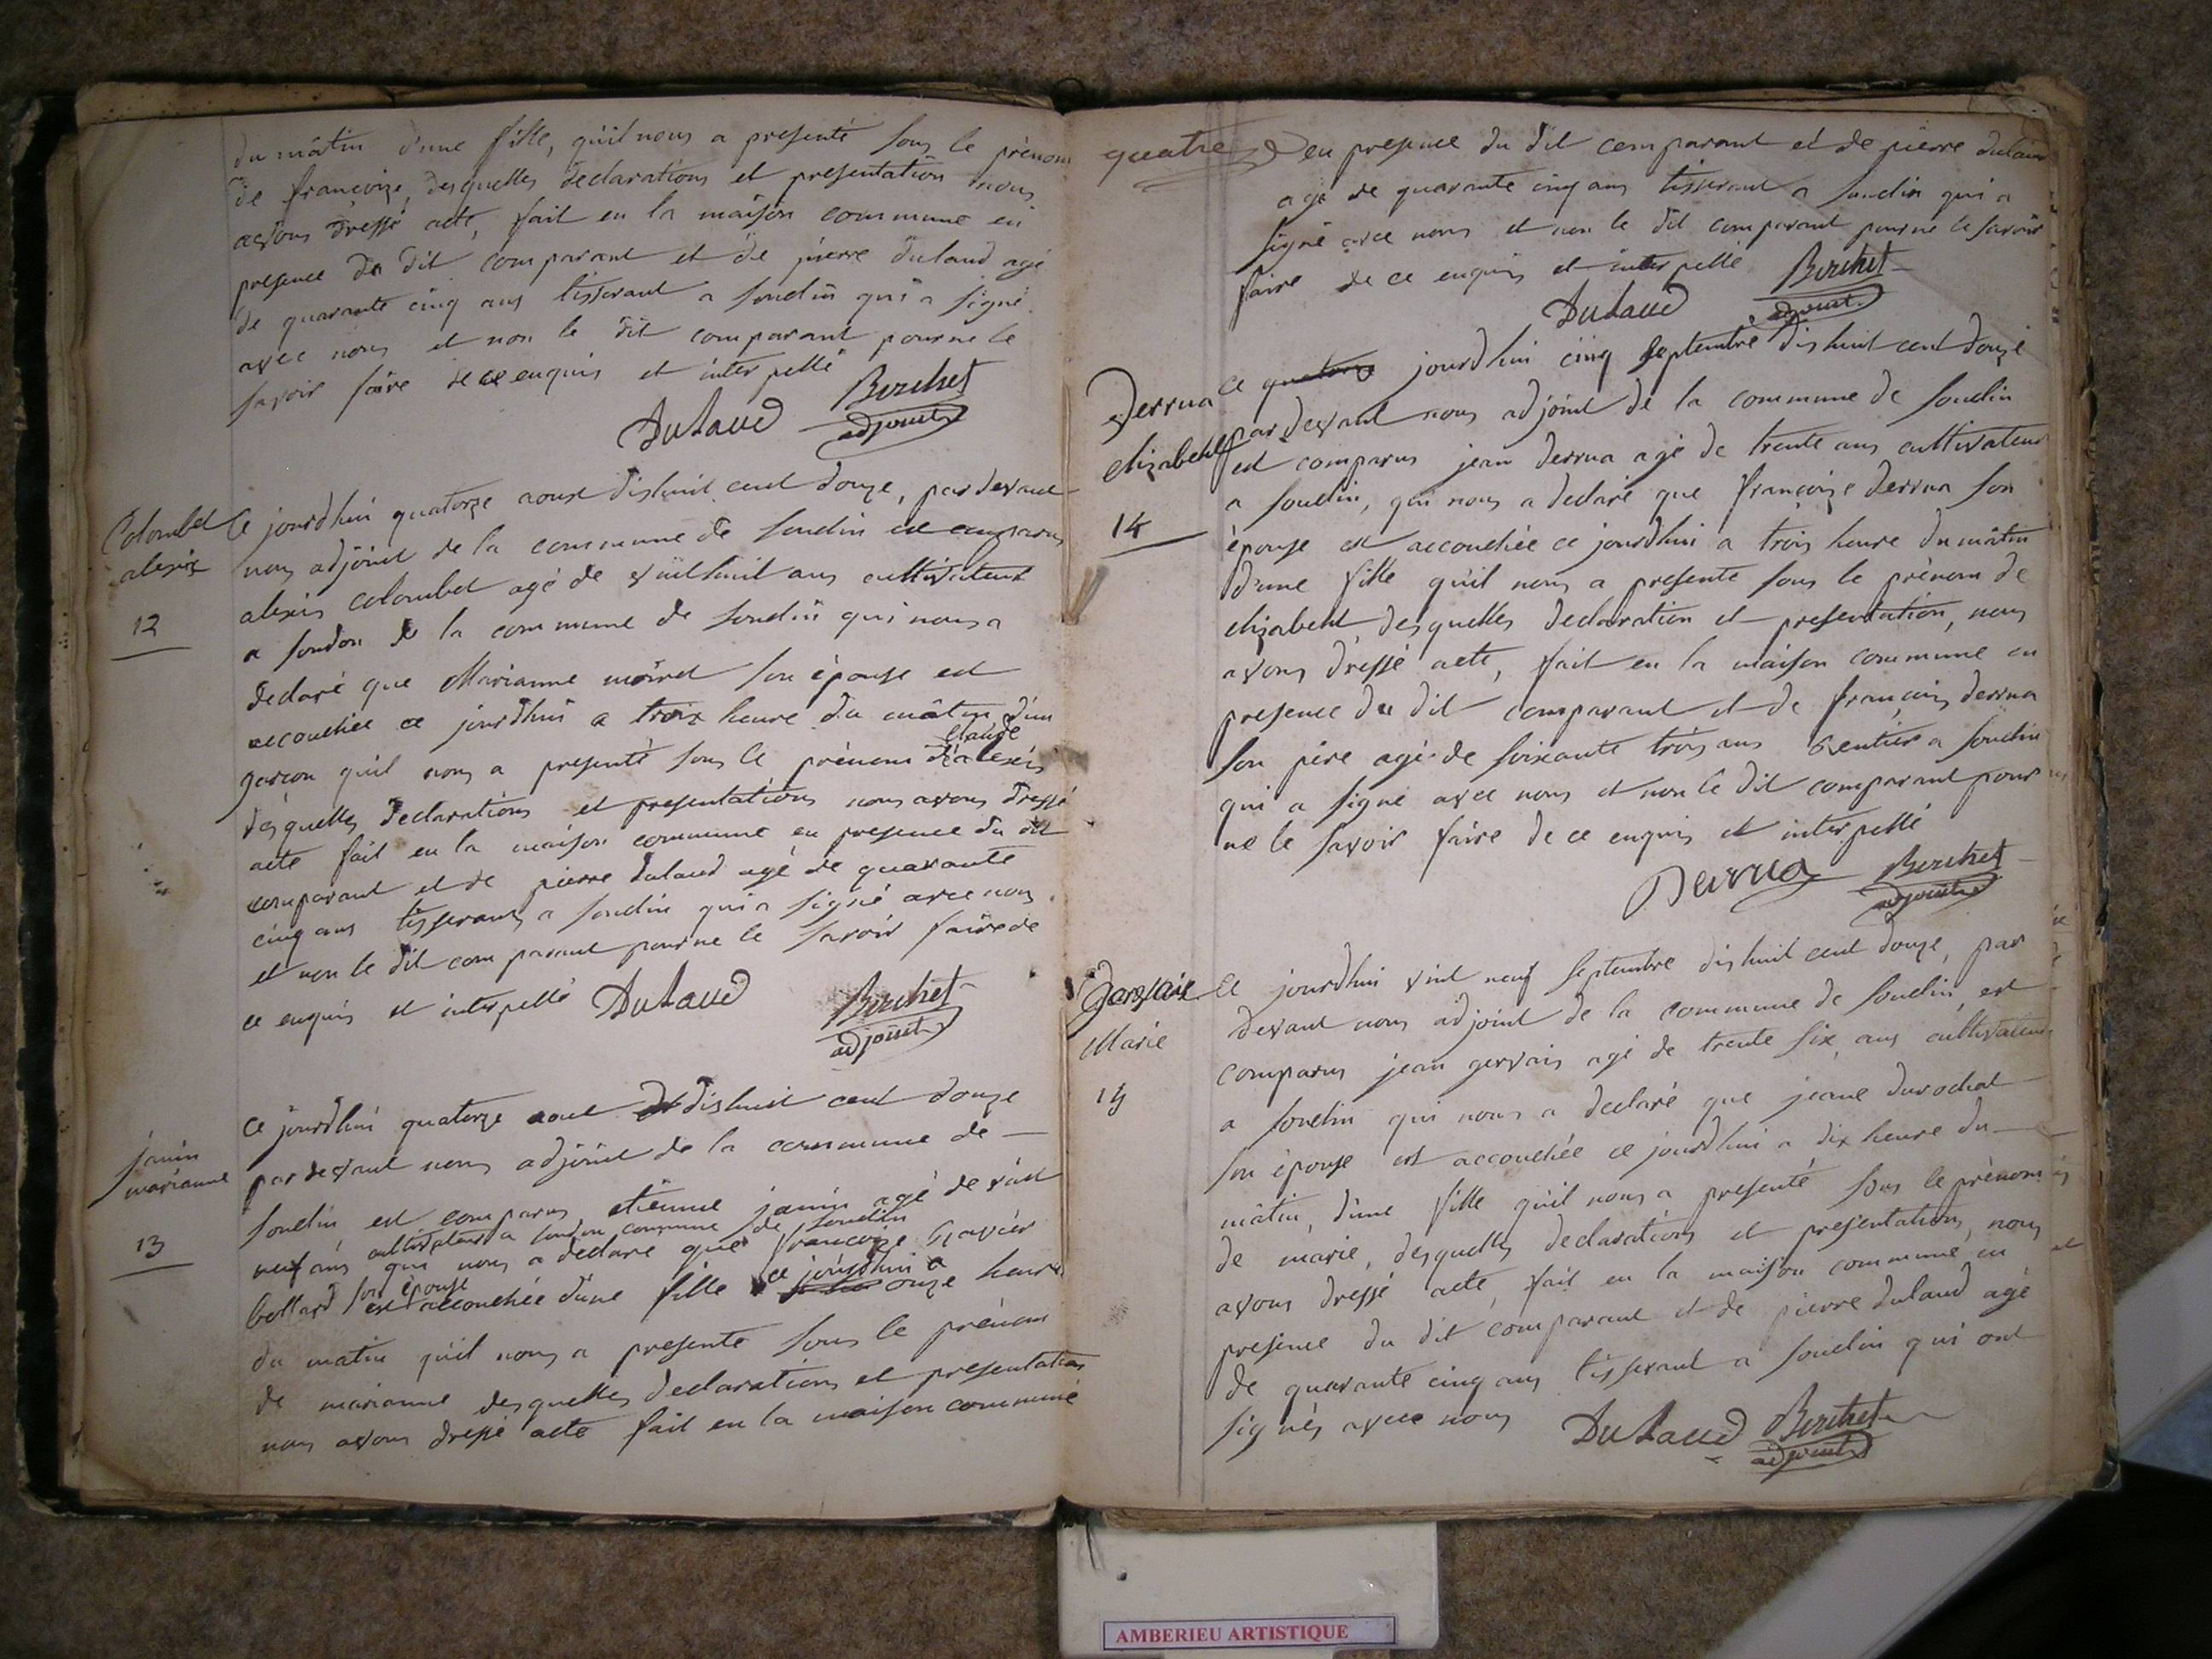 du mâtin d'une fille, qu'il nous a presenté sous le prénom
de françoize, desquelles declarations et presentation nous
avons dressé acte, fait en la maison commune en
presence du dit comparant et de pierre dulaud agé
de quarante cinq ans tisserant a soudin qui a signé
avec nous et non le dit comparant pour ne le
savoir faire de ce enquis et interpellé
DuLaud Berchet
adjoint
Colombet
alexis
12
Ce jourdhui quatorze aoust dishuit cent douze, par devant
nous adjoint de la commune de soudin est comparus
alexis colombet agé de vint huit ans cultivateur
a soudon de la commune de soudin qui nous a
declaré que Marianne moiret son épouse est
accouchée ce jourdhui a trois heure du mâtin d'un
garcon qu'il nous a presenté sous le prénom d'alexis claude
desquelles declarations et presentations nous avons dressé
acte fait en la maison commune en presence du dit
comparant et de pierre dulaud agé de quarante
cinq ans tisserant a soudin qui a signé avec nous
et non le dit comparant pour ne le savoir faire de
ce enquis et interpellé DuLaud Berchet
adjoint
janin
marianne
13
Ce jourdhui quatorze aout dishuit cent douze
par devant nous adjoint de la commune de
soudin, est comparus etienne janin agé de vint
neuf ans cultivateur a soudon commune de soudin
qui nous a declare que françoize
bollard son épouse est accouchée d'une fille ce jourdhui a onze heure
du matin qu'il nous a presenté sous le prénom
de marianne desquelles declarations et presentation
nous avons dressé acte fait en la maison commune
quatre
en presence du dit comparant et de pierre dulaud
agé de quarante cinq ans tisserant a soudin qui a
signé avec nous et non le dit comparant pour ne le savoir
faire de ce enquis et interpellé Berchet
DuLaud adjoint
Derrua
elizabeht
14
Ce quatorze jourdhui cinq septembre dishuit cent douze
par devant nous adjoint de la commune de soudin
est comparus jean derrua agé de trente ans cultivateur
a soudin, qui nous a declaré que françoize derrua son
épouse est accouchée ce jourdhui a trois heure du mâtin
d'une fille qu'il nous a presenté sous le prénom de
elizabeht, desquelles declaration et presentation, nous
avons dressé acte, fait en la maison commune en
presence du dit comparant et de françois derrua
son père agé de soixante trois ans rentier a soudin
qui a signé avec nous et non le dit comparant pour
ne le savoir faire de ce enquis et interpellé
Derrua Berchet
adjoint
Gervais
Marie
15
Ce jourdhui vint neuf septembre dishuit cent douze, par
devant nous adjoint de la commune de soudin, est
comparus jean gervais agé de trente six ans cultivateur
a soudin qui nous a declaré que jeane durochat
son épouse est accouchée ce jourdhui a dix heure du
mâtin, d'une fille qu'il nous a presenté sous le prénom
de marie, desquelles declarations et presentation, nous
avons dressé acte, fait en la maison commune en
presence du dit comparant et de pierre dulaud agé
de quarante cinq ans tisserant a soudin qui ont
signés avec nous DuLaud Berchet
adjoint
AMBERIEU ARTISTIQUE